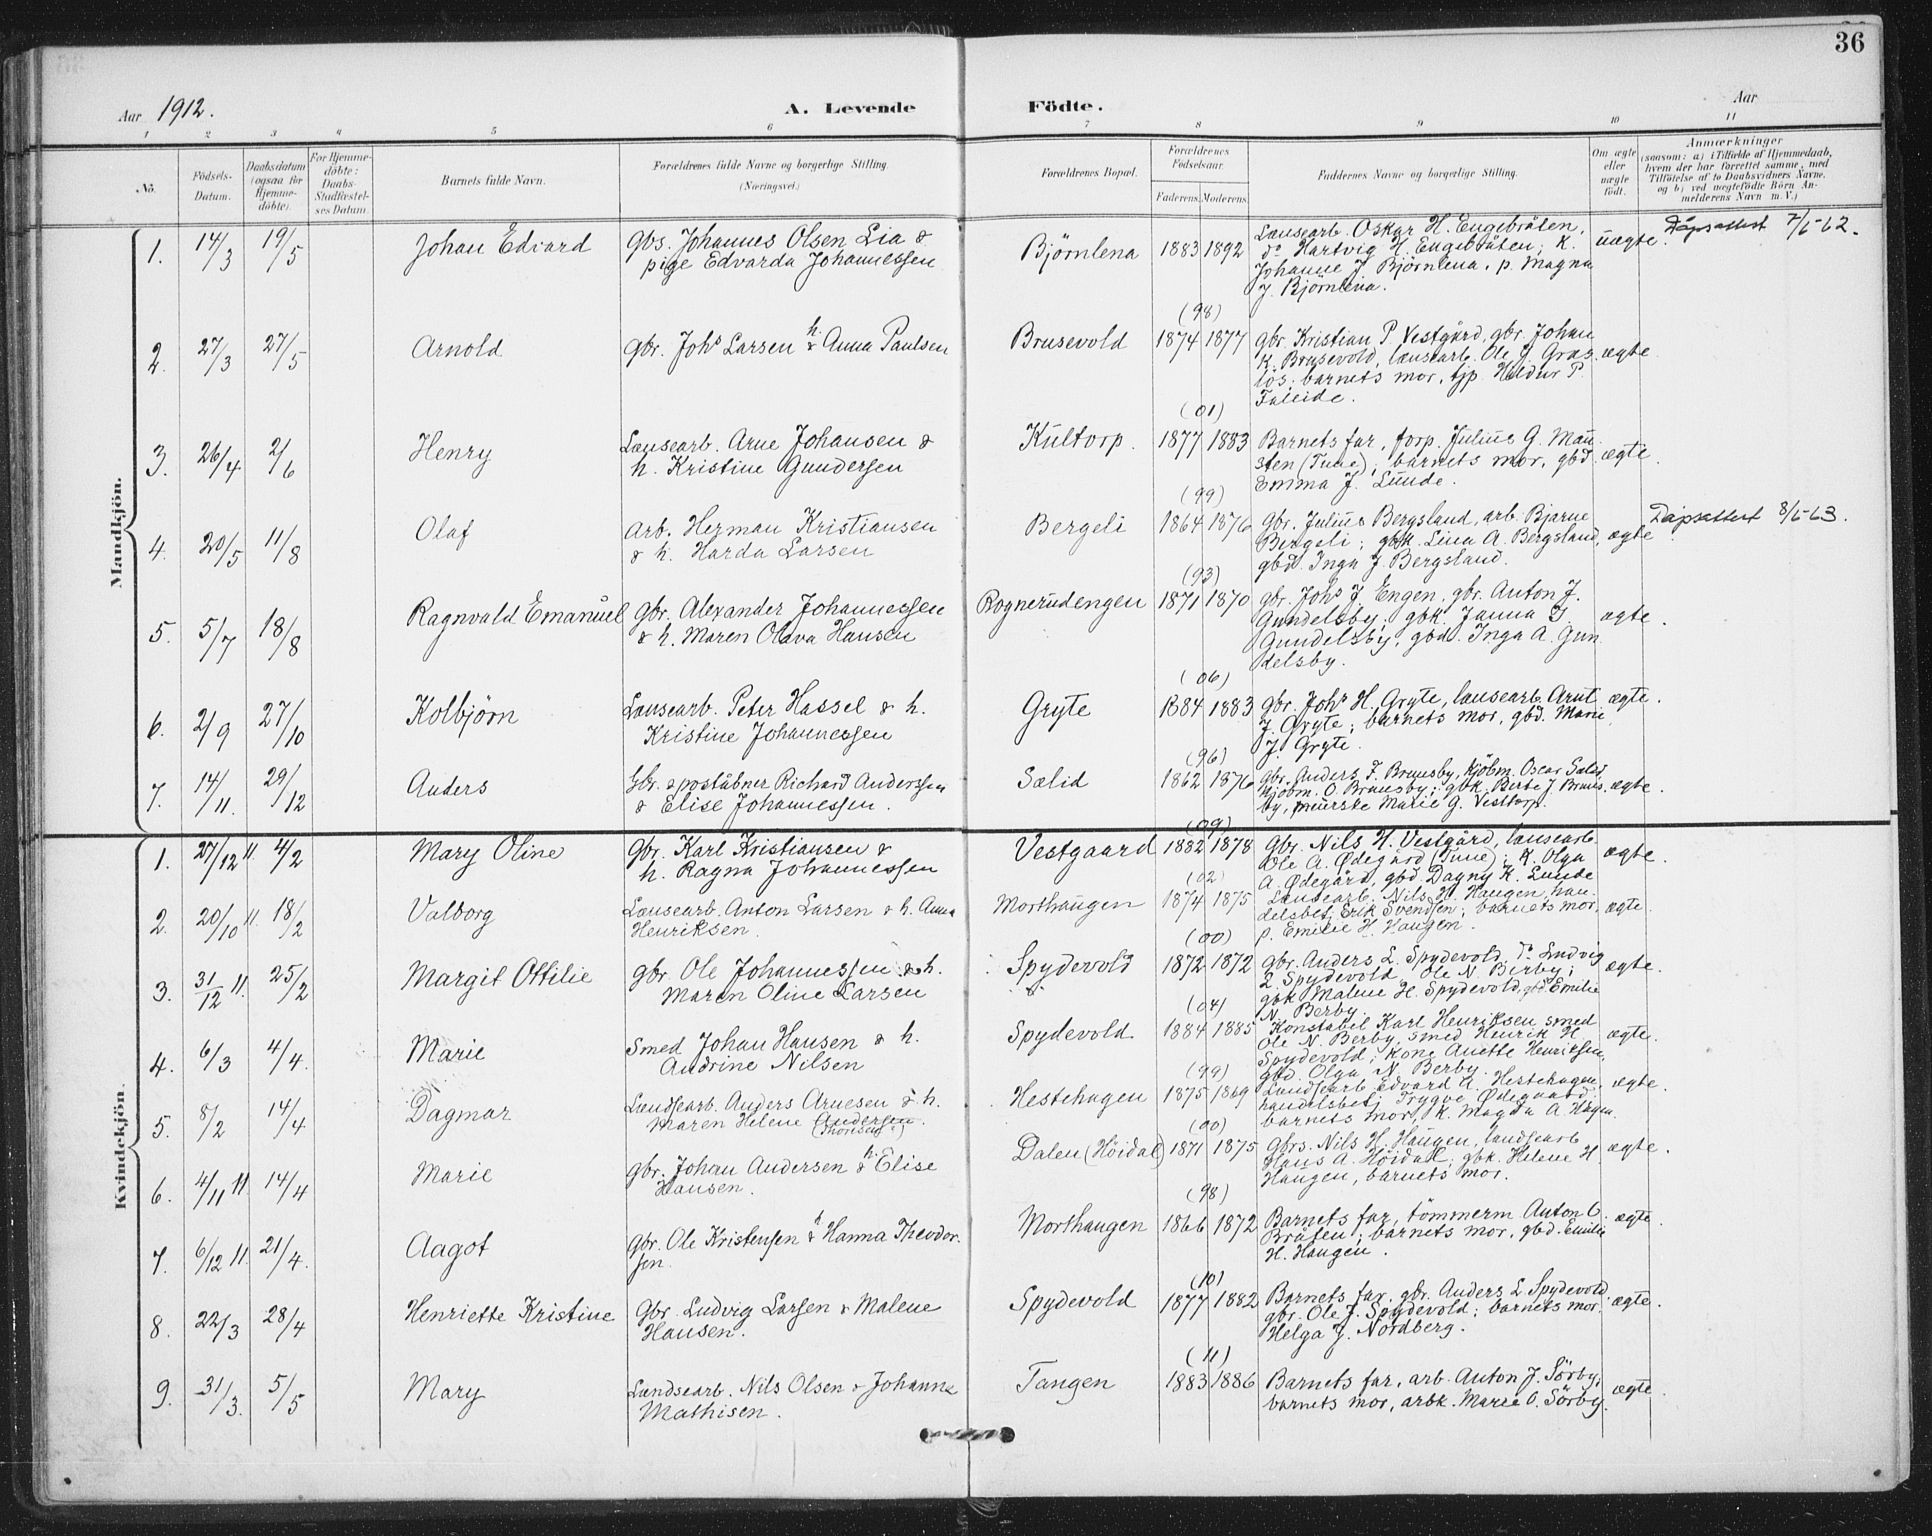 36
Aar 1912.
A. Levende Födte.
Aar
1 2 3 4 5 6 7 8 9 10 11
No.
Födsels-Datum.
Daabsdatum (ogsaa for Hjemme-döbte).
For Hjemme-döbte: Daabs-Stadfæstel-ses Datum.
Barnets fulde Navn.
Forældrenes fulde Navne og borgerlige Stilling.
(Næringsvei.)
Forældrenes Bopæl.
Forældrenes Födselsaar.
Faderens. Moderens.
Faddernes Navne og borgerlige Stilling.
Om ægte eller uægte födt.
Anmærkninger
(saasom: a) i Tilfælde af Hjemmedaab,
hvem der har forrettet samme, med
Tilföielse af to Daabsvidners Navne,
og b) ved uægtefödte Börn An-
melderens Navn m. V.)
Mandkjön.
1. 14/3 19/5 Johan Edvard
Gbs. Johannes Olsen Lia &
pige Edvarda Johannessen
Björnlena 1883 1892
Lænsearb. Oskar H. Engebråten,
do Hartvig H. Engebråten; K.
Johanne J. Björnlena, p. Magna
J. Björnlena.
uægte. Dåpsattest 7/5-62.
2. 27/3 27/5 Arnold
gbr. Johs Larsen & h. Anna Paulsen
Brusevold (98) 1874 1877
gbr. Kristian P. Vestgård, gbr. Johan
K. Brusevold, lænsearb. Ole J. Gras-
lös; barnets mor, tjp. Heldur P.
Faleide.
ægte.
3. 26/4 2/6 Henry
Lænsearb. Arne Johansen &
h. Kristine Gundersen
Kultorp. (01) 1877 1883
Barnets far, forp. Julius G. Mau-
sten (Tune); barnets mor, gbd
Emma J. Lunde.
ægte.
4. 20/5 11/8 Olaf
Arb. Herman Kristiansen
& h. Harda Larsen
Bergeli (99) 1864 1876
Gbr. Julius Bergsland, arb. Bjarne
Bergeli; gbk. Lina A. Bergsland,
gbd. Inga J. Bergsland.
ægte. Dåpsattest 8/5-63.
5. 5/7 18/8 Ragnvald Emanuel
Gbr. Alexander Johannessen
& h. Maren Olava Hansen
Rognerudengen (93) 1871 1870
gbr. Johs J. Engen, gbr. Anton J.
Gundelsby; gbk. Janna J.
Gundelsby, gbd. Inga A. Gun
delsby.
ægte.
6. 2/9 27/10 Kolbjörn
Lænsearb. Peter Hassel & h.
Kristine Johannessen
Gryte (06) 1884 1883
gbr. Johs H. Gryte, lænsearb. Arnt
J. Gryte; barnets mor, gbd. Marie
J. Gryte.
ægte.
7. 14/11. 29/12 Anders
Gbr. & poståbner Richard Anderssen
& Elise Johannessen.
Sælid (96) 1862 1876
gbr. Anders F. Brunsby, Kjöbm. Oscar Sælid,
Kjöbm. O. Brunsby; gbk. Berte J. Bruns-
by, meierske Marie G. Vesttorp.
ægte.
Kvindekjön.
1. 27/12 11. 4/2 Mary Oline
Gbr. Karl Kristiansen &
h. Ragna Johannessen
Vestgaard (09) 1882 1878
Gbr. Nils H. Vestgård, lænsearb.
Ole A. Ødegård (Tune); K. Olga
A. Ødegård, gbd. Dagny K. Lunde
ægte.
2. 20/10 11. 18/2 Valborg
Lænsearb. Anton Larsen & h. Anna
Henriksen.
Morthaugen (02) 1874 1875
Lænsearb. Nils H. Haugen, han-
delsbet. Erik Svendsen; barnets mor,
p. Emilie H. Haugen.
ægte.
3. 31/12 11. 25/2 Margit Ottilie
gbr. Ole Johannessen & h.
Maren Oline Larsen
Spydevold (00) 1872 1872
gbr. Anders L. Spydevold, do Ludvig
L. Spydevold, Ole N. Berby;
gbk Malene H. Spydevold, gbd Emilie
N. Berby
ægte.
4. 6/3 4/4. Marie
Smed Johan Hansen & h.
Andrine Nilsen
Spydevold (04) 1884 1885
Konstabel Karl Henriksen, smed
Ole N. Berby, smed Henrik H.
Spydevold; kone Anette Henriksen,
gbd. Olga N. Berby.
ægte.
5. 8/2 14/4 Dagmar
Lændsearb. Anders Arnesen & h.
Maren Helene Andersen.
Hestehagen (99) 1875 1869
Lændsearb. Edvard A. Hestehagen,
handelsbetj. Trygve Ødegaard;
barnets mor, K. Magda A. Hagen.
ægte.
6. 4/11 11 14/4 Marie
gbr. Johan Andersen & h. Elise
Hansen.
Dalen (Höidal) (00) 1871 1875
Gbrs. Nils H. Haugen, lændsearb
Hans A. Höidal; gbk. Helene H
Haugen, barnets mor.
ægte.
7. 6/12 11. 21/4. Aagot
Gbr. Ole Kristensen & h Hanna Theodor-
sen.
Morthaugen (98) 1866 1872
Barnets far, tömmerm. Anton O.
Bråten; barnets mor, gbd. Emilie
H. Haugen.
ægte.
8. 22/3 28/4 Henriette Kristine
Gbr. Ludvig Larsen & Malene
Hansen.
Spydevold (10) 1877 1882
Barnets far, gbr. Anders L. Spydevold.
gbr. Ole J. Spydevold; barnets mor,
Helga J. Nordberg.
ægte.
9. 31/3. 5/5 Mary
Lændsearb. Nils Olsen & Johanne
Mathisen.
Tangen (11) 1883 1886
Barnets far, arb. Anton J. Sörby;
barnets mor, arbk. Marie O. Sörby.
ægte.